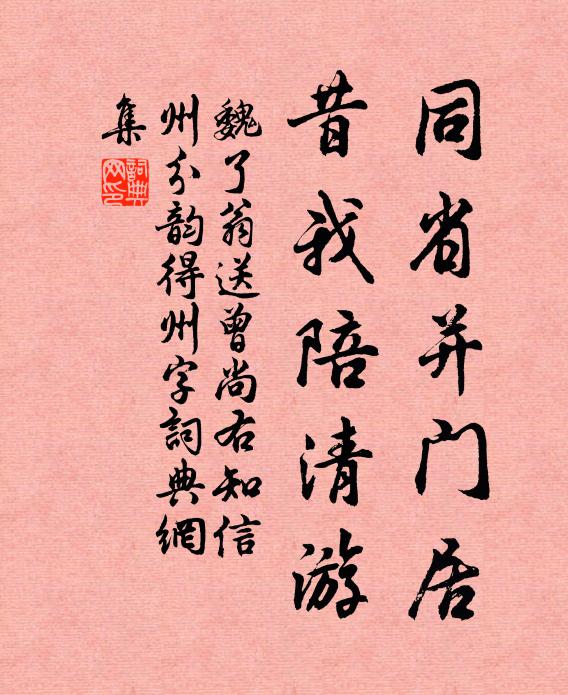 同省并门居
昔我陪清游
魏了翁送曾尚右知信
州分韵得州字詞典網
集
詞典網印